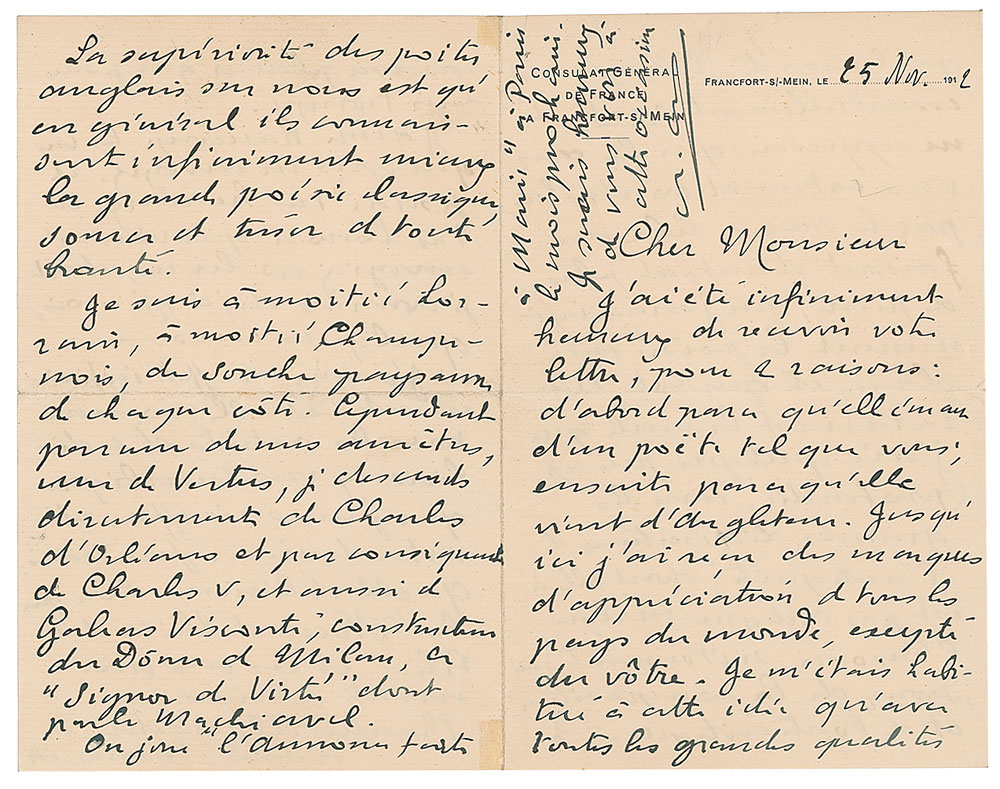 CONSULAT GÉNÉRAL
DE FRANCE
A FRANCFORT-S/-MEIN
FRANCFORT-S/-MEIN, LE 25 Nov. 1912
Cher Monsieur
J'ai été infiniment
heureux de recevoir votre
lettre, pour 2 raisons :
d'abord parce qu'elle émane
d'un poëte tel que vous ;
ensuite parce qu'elle
vient d'Angleterre. Jusqu'
ici j'ai reçu des marques
d'appréciation de tous les
pays du monde, excepté
du vôtre. Je m'étais habi-
tué à cette idée qu'avec
toutes les grandes qualités
La supériorité des poètes
anglais sur nous est qu'
en général ils connais-
sent infiniment mieux
la grande poésie classique,
source et trésor de toute
beauté.
Je suis à moitié Lor-
rain, à moitié Champe-
nois, de souche paysanne
de chaque côté. Cependant
par une de mes ancêtres,
une de Vertus, je descends
directement de Charles
d'Orléans et par conséquent
de Charles V, et aussi de
Galeas Visconti, constructeur
du Dôme de Milan, ce
"Signor de Virtù" dont
parle Machiavel.
On joue "l'Annonce faite
à Marie" à Paris
le mois prochain.
Je serais heureux
de vous voir à
cette occasion